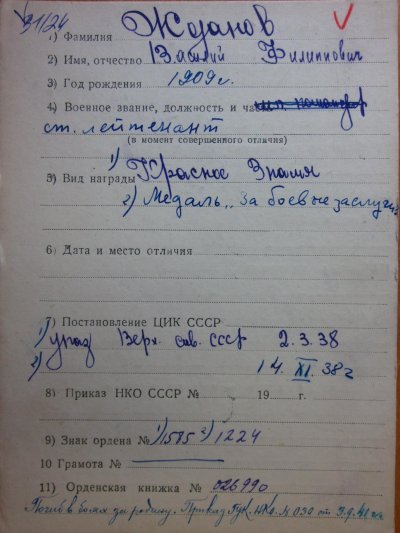 91/24
1) Фамилия Жданов
2) Имя, отчество Василий Филиппович
3) Год рождения 1909 г.
4) Военное звание, должность и часть
ст. лейтенант
(в момент совершенного отличия)
3) Вид награды 1) Красное Знамя
2) Медаль „За боевые заслуги"
6) Дата и место отличия
7) Постановление ЦИК СССР
1) указ Верх. сов. СССР 2.3.38
2) 14. XI. 38 г
8) Приказ НКО СССР № 19 г.
9) Знак ордена № 1) 1515 2) 1224
10 Грамота №
11) Орденская книжка № 026990
Погиб в боях за родину. Приказ ГУК. НКО. N 030 от